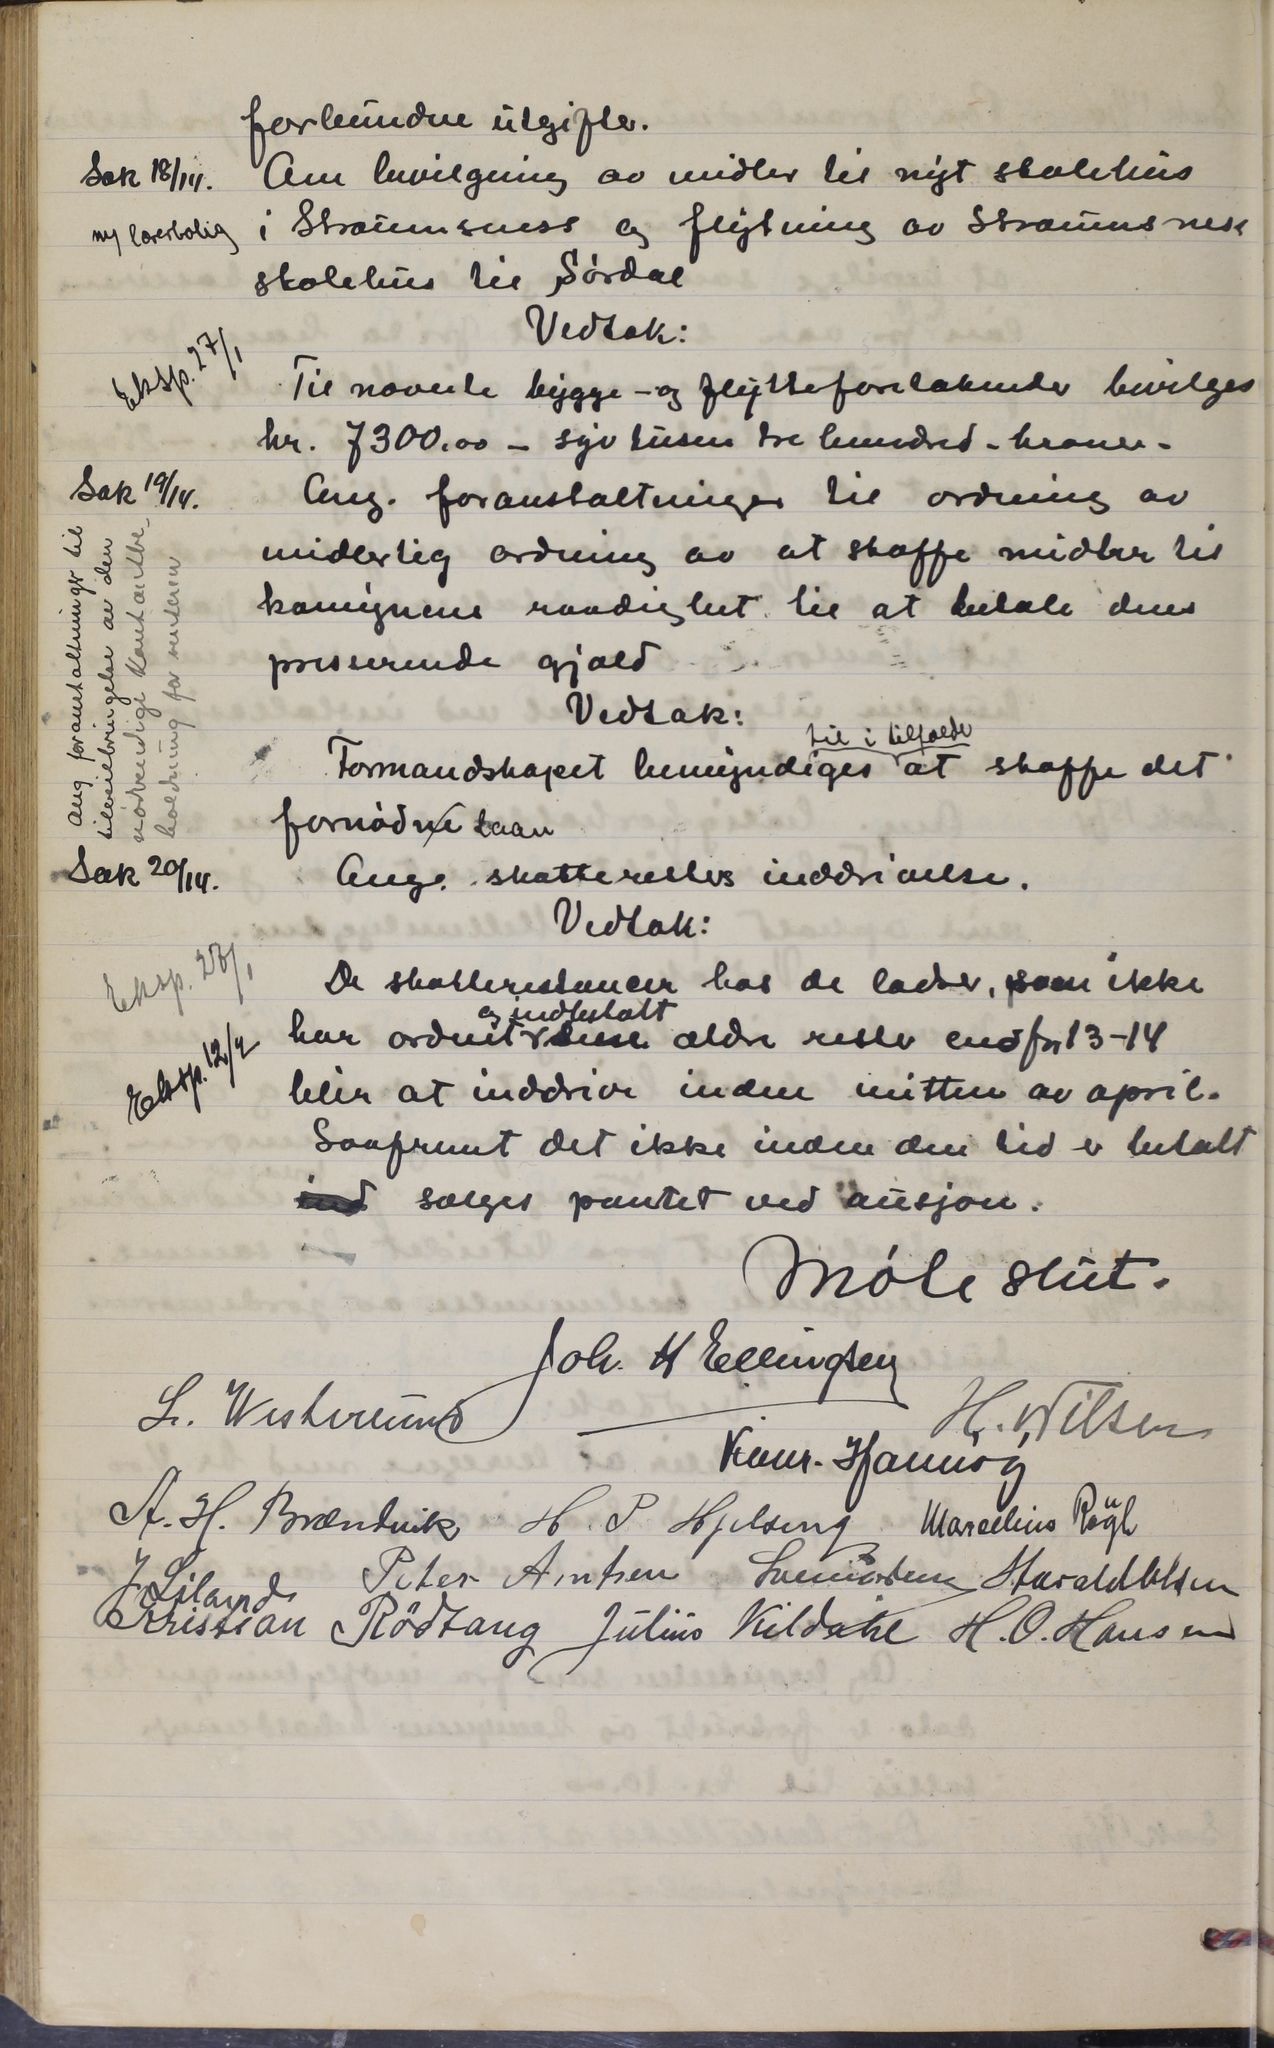 forbundne utgifter.
Sak 18/14. Om bevilgning av midler til nyt skolehus
ny lærerbolig i Straumsness og flytning av Straumsnesk
skolehus til Sørdal
Vedtak:
Eksp. 27/1
Til nævnte bygge- og flytteforetakender bevilges
kr. 7300.00 - syv tusen tre hundred - kroner -
Sak 19/14. Ang. foranstaltninger til ordning av
midlertig ordning av at skaffe midler til
komunens raadighet til at betale dens
presserende gjæld
Ang foranstaltninger til
tilveiebringelse av den
nödvendige kontantbe-
holdning for
Vedtak:
til i tilfælde
Formandskapet bemyndiges at skaffe det
fornødne laan
Sak 20/14. Ang. skatteresters inddrivelse.
Vedtak:
Eksp. 28/1
De skatterestancer hos de lodser, som ikke
og indbetalt
har ordnet disse ældre rester end for 13-14
Eksp. 12/2
blir at inddrive inden mitten av april.
Saafremt det ikke inden den tid er betalt
sælges pantet ved ausjon.
Møte slut.
Joh. H Ellingsen
L. Westerlund H. Nilsen
A. H. Brændvik H. P. Hjelseng Marcelius
J Liland Peter Arntsen Harald Olsen
Kristian Rödtang Julius Kildahl H. O. Hansen